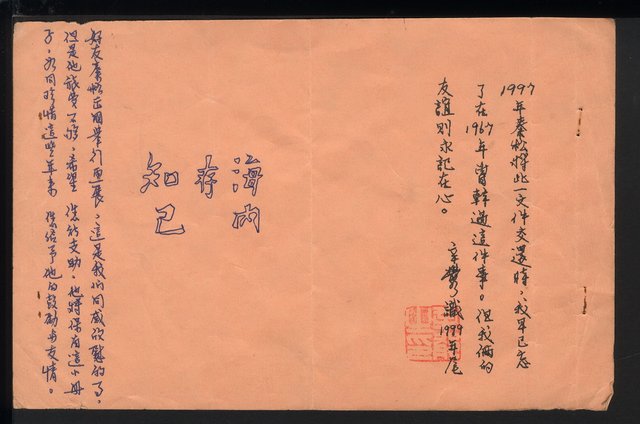 1997年秦松將此一文件交還時,我早已忘
了在1967年曾幹過這件事。但我倆的
友誼則永記在心。
辛鬱識 1999年尾
海內
存
知己
好友秦松正國舉行畫展,這是我們同感欣慰的了。
但是他旅費不夠,希望 您能支助。他將保有這小冊
子,永同珍惜這些年來 您給予他的鼓勵與友情。